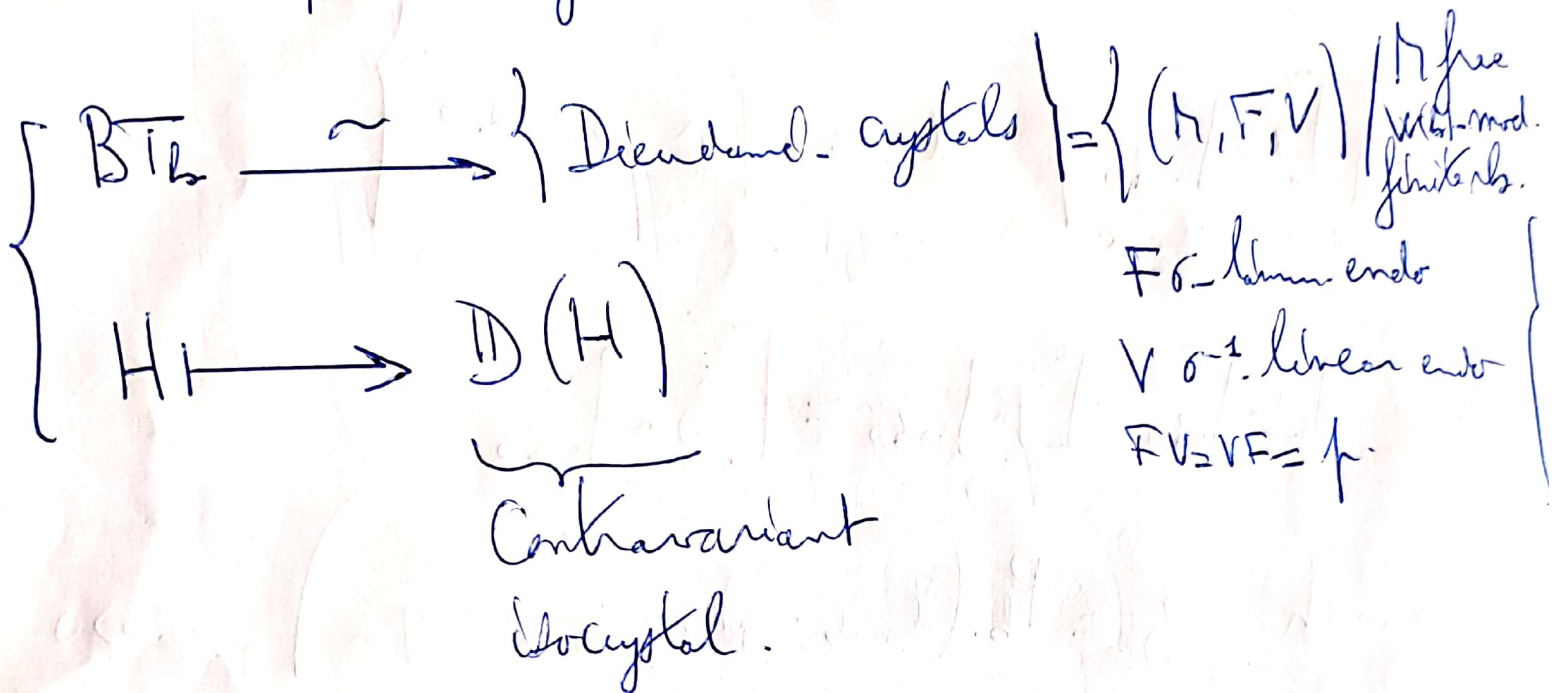 BT_k ⥲ { Dieudonné-crystals } = { (M, F, V) | M free
W(k)-mod.
finite rk.
F σ-linear endo
V σ⁻¹-linear endo
FV=VF=p. }
H ↦ 𝔻(H)
Contravariant
isocrystal.